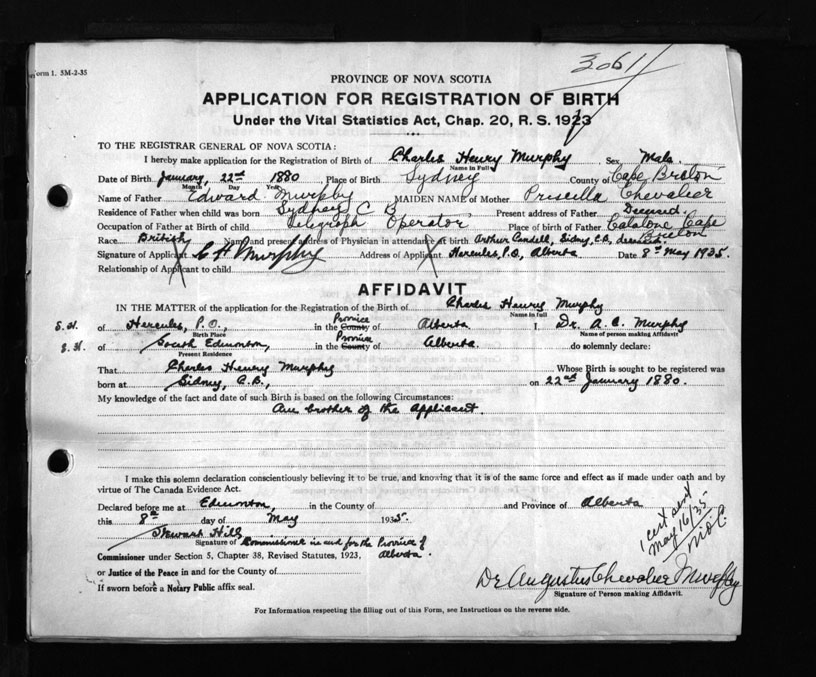 Form 1. 5M-2-35
3061
PROVINCE OF NOVA SCOTIA
APPLICATION FOR REGISTRATION OF BIRTH
Under the Vital Statistics Act, Chap. 20, R. S. 1923
TO THE REGISTRAR GENERAL OF NOVA SCOTIA:
I hereby make application for the Registration of Birth of Charles Henry Murphy Sex Male.
Name in Full
Date of Birth January, 22nd 1880 Place of Birth Sydney County of Cape Breton
Month Day Year
Name of Father Edward Murphy MAIDEN NAME of Mother Priscilla Chevalier
Residence of Father when child was born Sydney C B, Present address of Father Deceased.
Occupation of Father at Birth of child Telegraph Operator Place of birth of Father Catalone Cape Breton
Race British Name and present address of Physician in attendance at birth Arthur Condell, Sidney, C.B., deceased.
Signature of Applicant C H Murphy Address of Applicant Hercules, P.O., Alberta Date 8th May 1935.
Relationship of Applicant to child
AFFIDAVIT
IN THE MATTER of the application for the Registration of Birth of Charles Henry Murphy
Name in Full
S.H. of Hercules, P.O., in the County Province of Alberta I, Dr. A. C. Murphy
Birth Place Name of person making Affidavit
S.H. of South Edmonton, in the County Province of Alberta. do solemnly declare:
Present Residence
That Charles Henry Murphy Whose Birth is sought to be registered was
born at Sidney, C.B., on 22nd January 1880.
My knowledge of the fact and date of such Birth is based on the following Circumstances:
Am brother of the Applicant.
I make this solemn declaration conscientiously believing it to be true, and knowing that it is of the same force and effect as if made under oath and by
virtue of The Canada Evidence Act.
Declared before me at Edmonton, in the County of and Province of Alberta
this 8th day of May 1935.
Stewart Hill
Signature of Commissioner in and for the Province of Alberta.
Commissioner under Section 5, Chapter 38, Revised Statutes, 1923,
or Justice of the Peace in and for the County of
If sworn before a Notary Public affix seal.
1 cert sent
May 16/35
Dr Augustus Chevalier Murphy
Signature of Person making Affidavit.
For Information respecting the filling out of this Form, see Instructions on the reverse side.